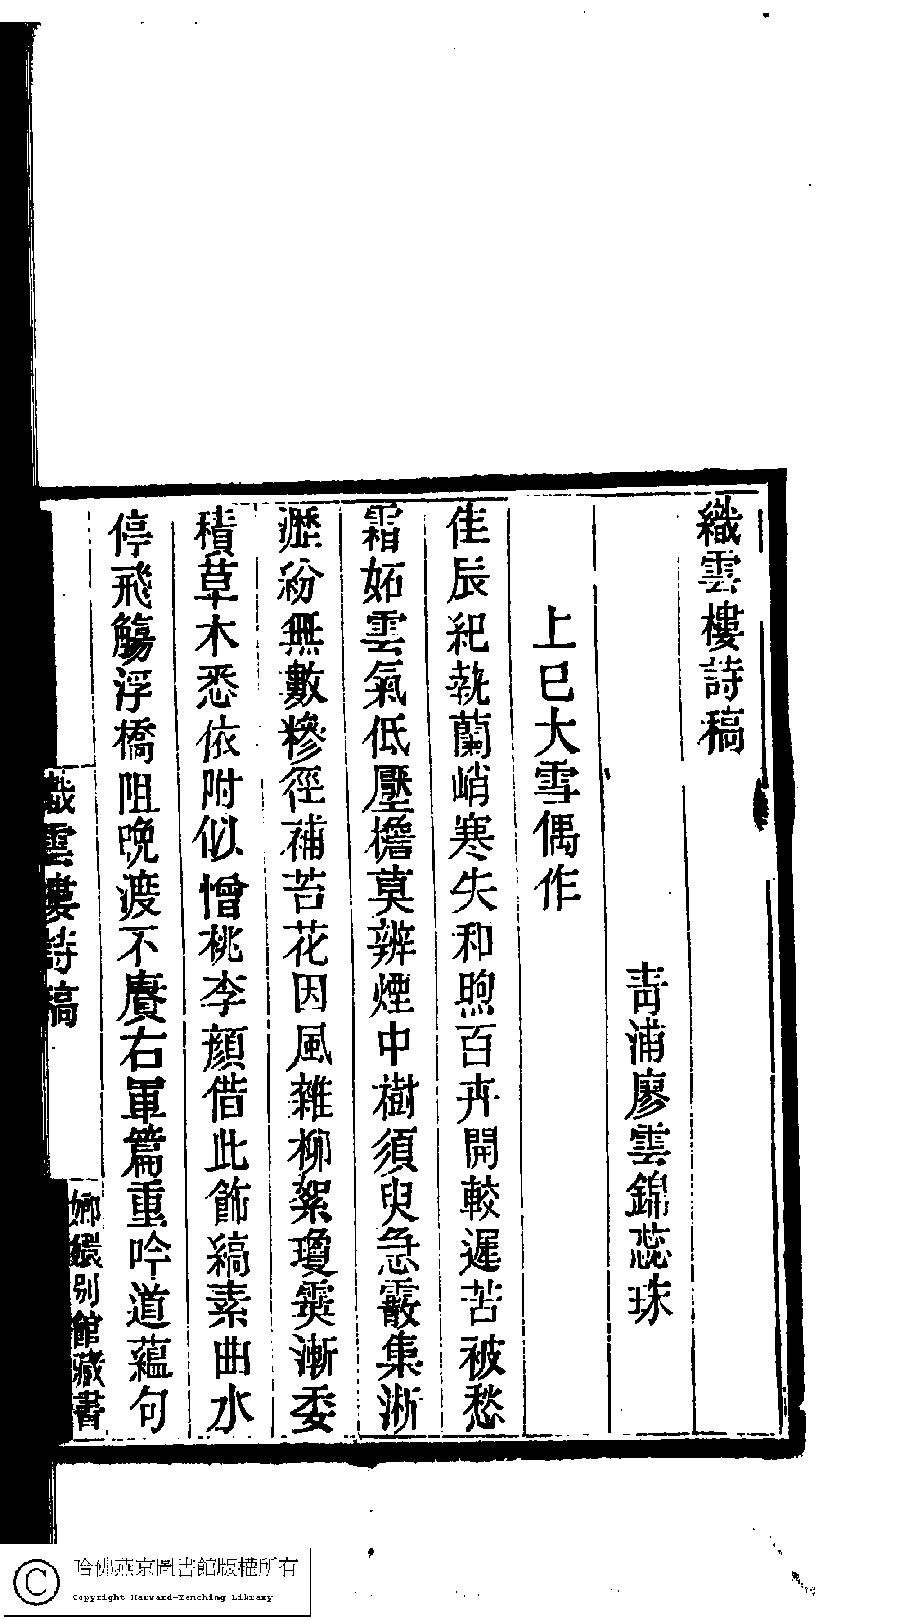 織雲樓詩稿
青浦廖雲錦蕊珠
上巳大雪偶作
佳辰紀執蘭峭寒失和煦百卉開較遲苦被愁
霜妬雲氣低壓檐莫辨煙中樹須臾急霰集淅
瀝紛無數糝徑補苔花因風雜柳絮瓊霙漸委
積草木悉依附似憎桃李顔借此飾縞素曲水
停飛觴浮橋阻晚渡不賡右軍篇重吟道蘊句
織雲樓詩稿
嫏嬛別館藏書
哈佛燕京圖書館版權所有
Copyright Harvard-Yenching Library